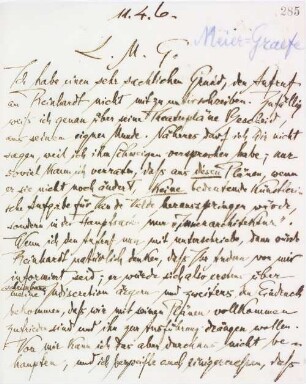 11.4.6.
285
Meier-Graefe
L. M. G.
Ich habe einen sehr sachlichen Grund, den
an Reinhardt nicht mitzuunterschreiben. Zufällig
weiß ich genau über seine Theaterpläne Bescheid,
aus seinem eignen Munde. Näheres darf ich Dir nicht
sagen, weil ich ihm Schweigen versprochen habe; nur
soviel kann ich verraten, daß aus diesen Plänen, wenn
er sie nicht noch ändert, keine bedeutende künstleri-
sche Aufgabe für van de Velde herausspringen würde
sondern in der Hauptsache nur "Innenarchitektur".
Wenn ich den nun mit unterschriebe, dann würde
Reinhardt natürlich denken, daß Ihr von mir
informirt seid; er würde sich also erstens über
meine Indiscretion ärgern und zweitens den Eindruck
bekommen, daß wir mit seinen Plänen vollkommen
zufrieden sind und ihn zur Ausführung drängen wollen.
Von mir kann ich das aber durchaus nicht be-
haupten, und ich bezweifle auch einigermaßen, daß